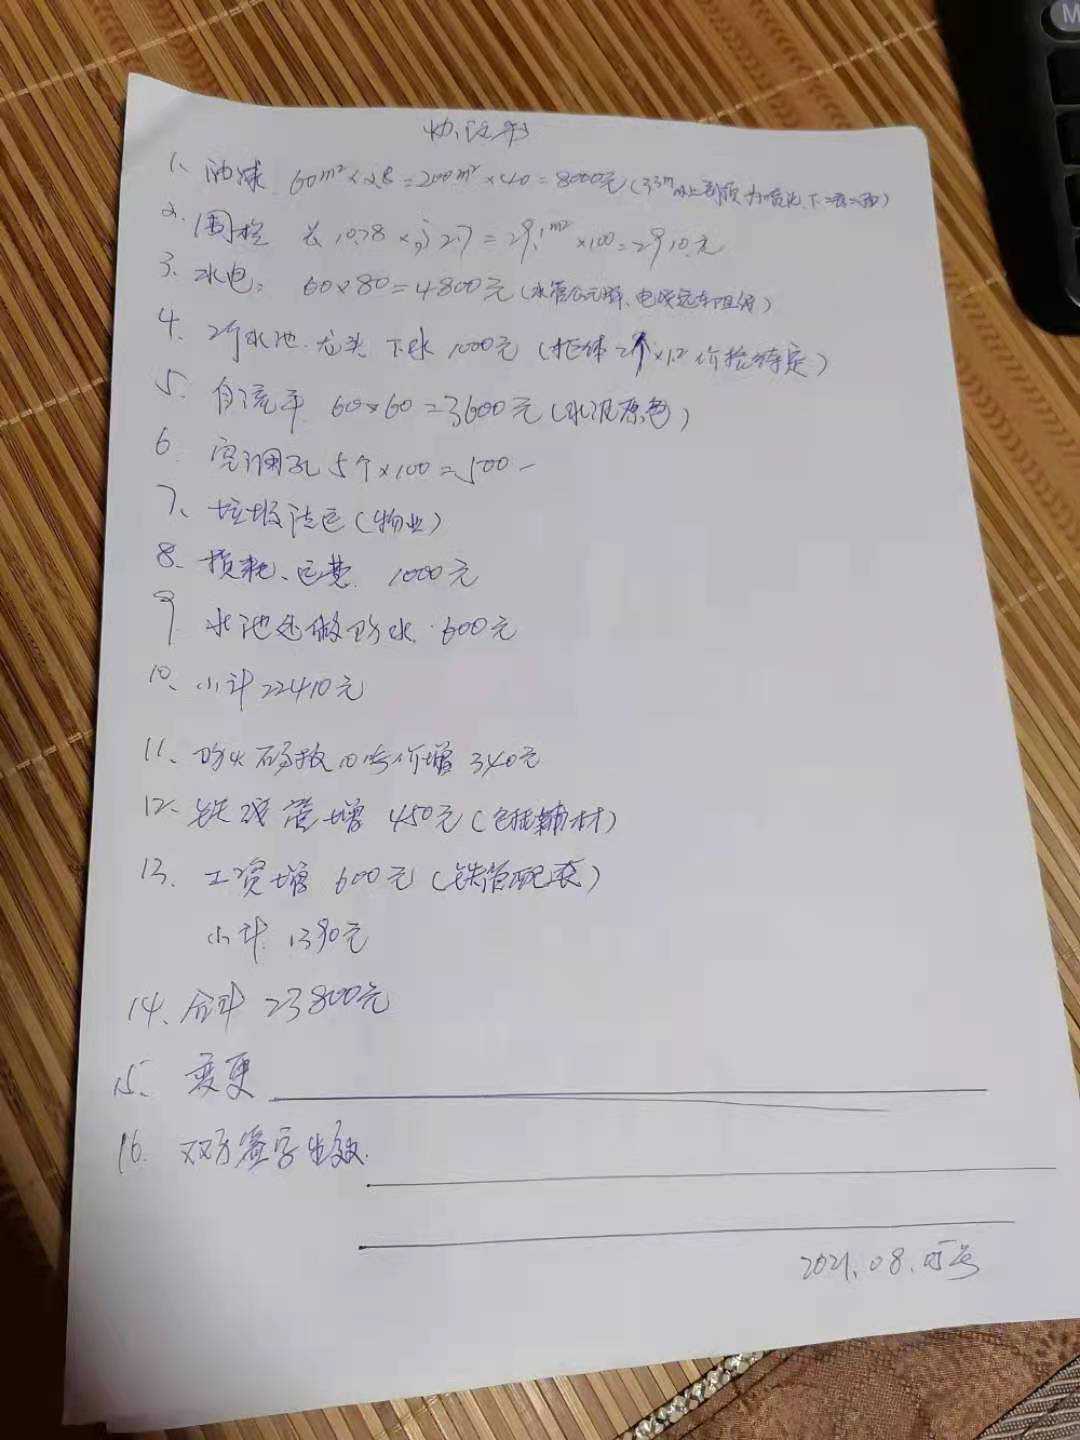 协议书
1、油漆 60m²×2.8=200m²×40=8000元(3.3m以上到顶为喷黑、下二底二面)
2. 围挡 长10.78×高2.7=29.1m²×100=2910.元
3、水电: 60×80=4800元(水管公元牌、电线远东阻燃)
4、2个水池.龙头.下水 1000元(柜体2个×1.2 价格待定)
5. 自流平. 60×60=3600元(水泥原色)
6. 空调孔 5个×100=500-
7、垃圾清运(物业)
8. 损耗、运费. 1000元
9. 水池处做防水. 600元
10、小计22410元
11、防火石膏板 价增 340元
12. 铁线管增 450元(包括辅材)
13. 工资增 600元(铁管配套)
小计. 1390元
14、合计 23800元
15、变更
16. 双方签字生效.
2021.08. 号
M